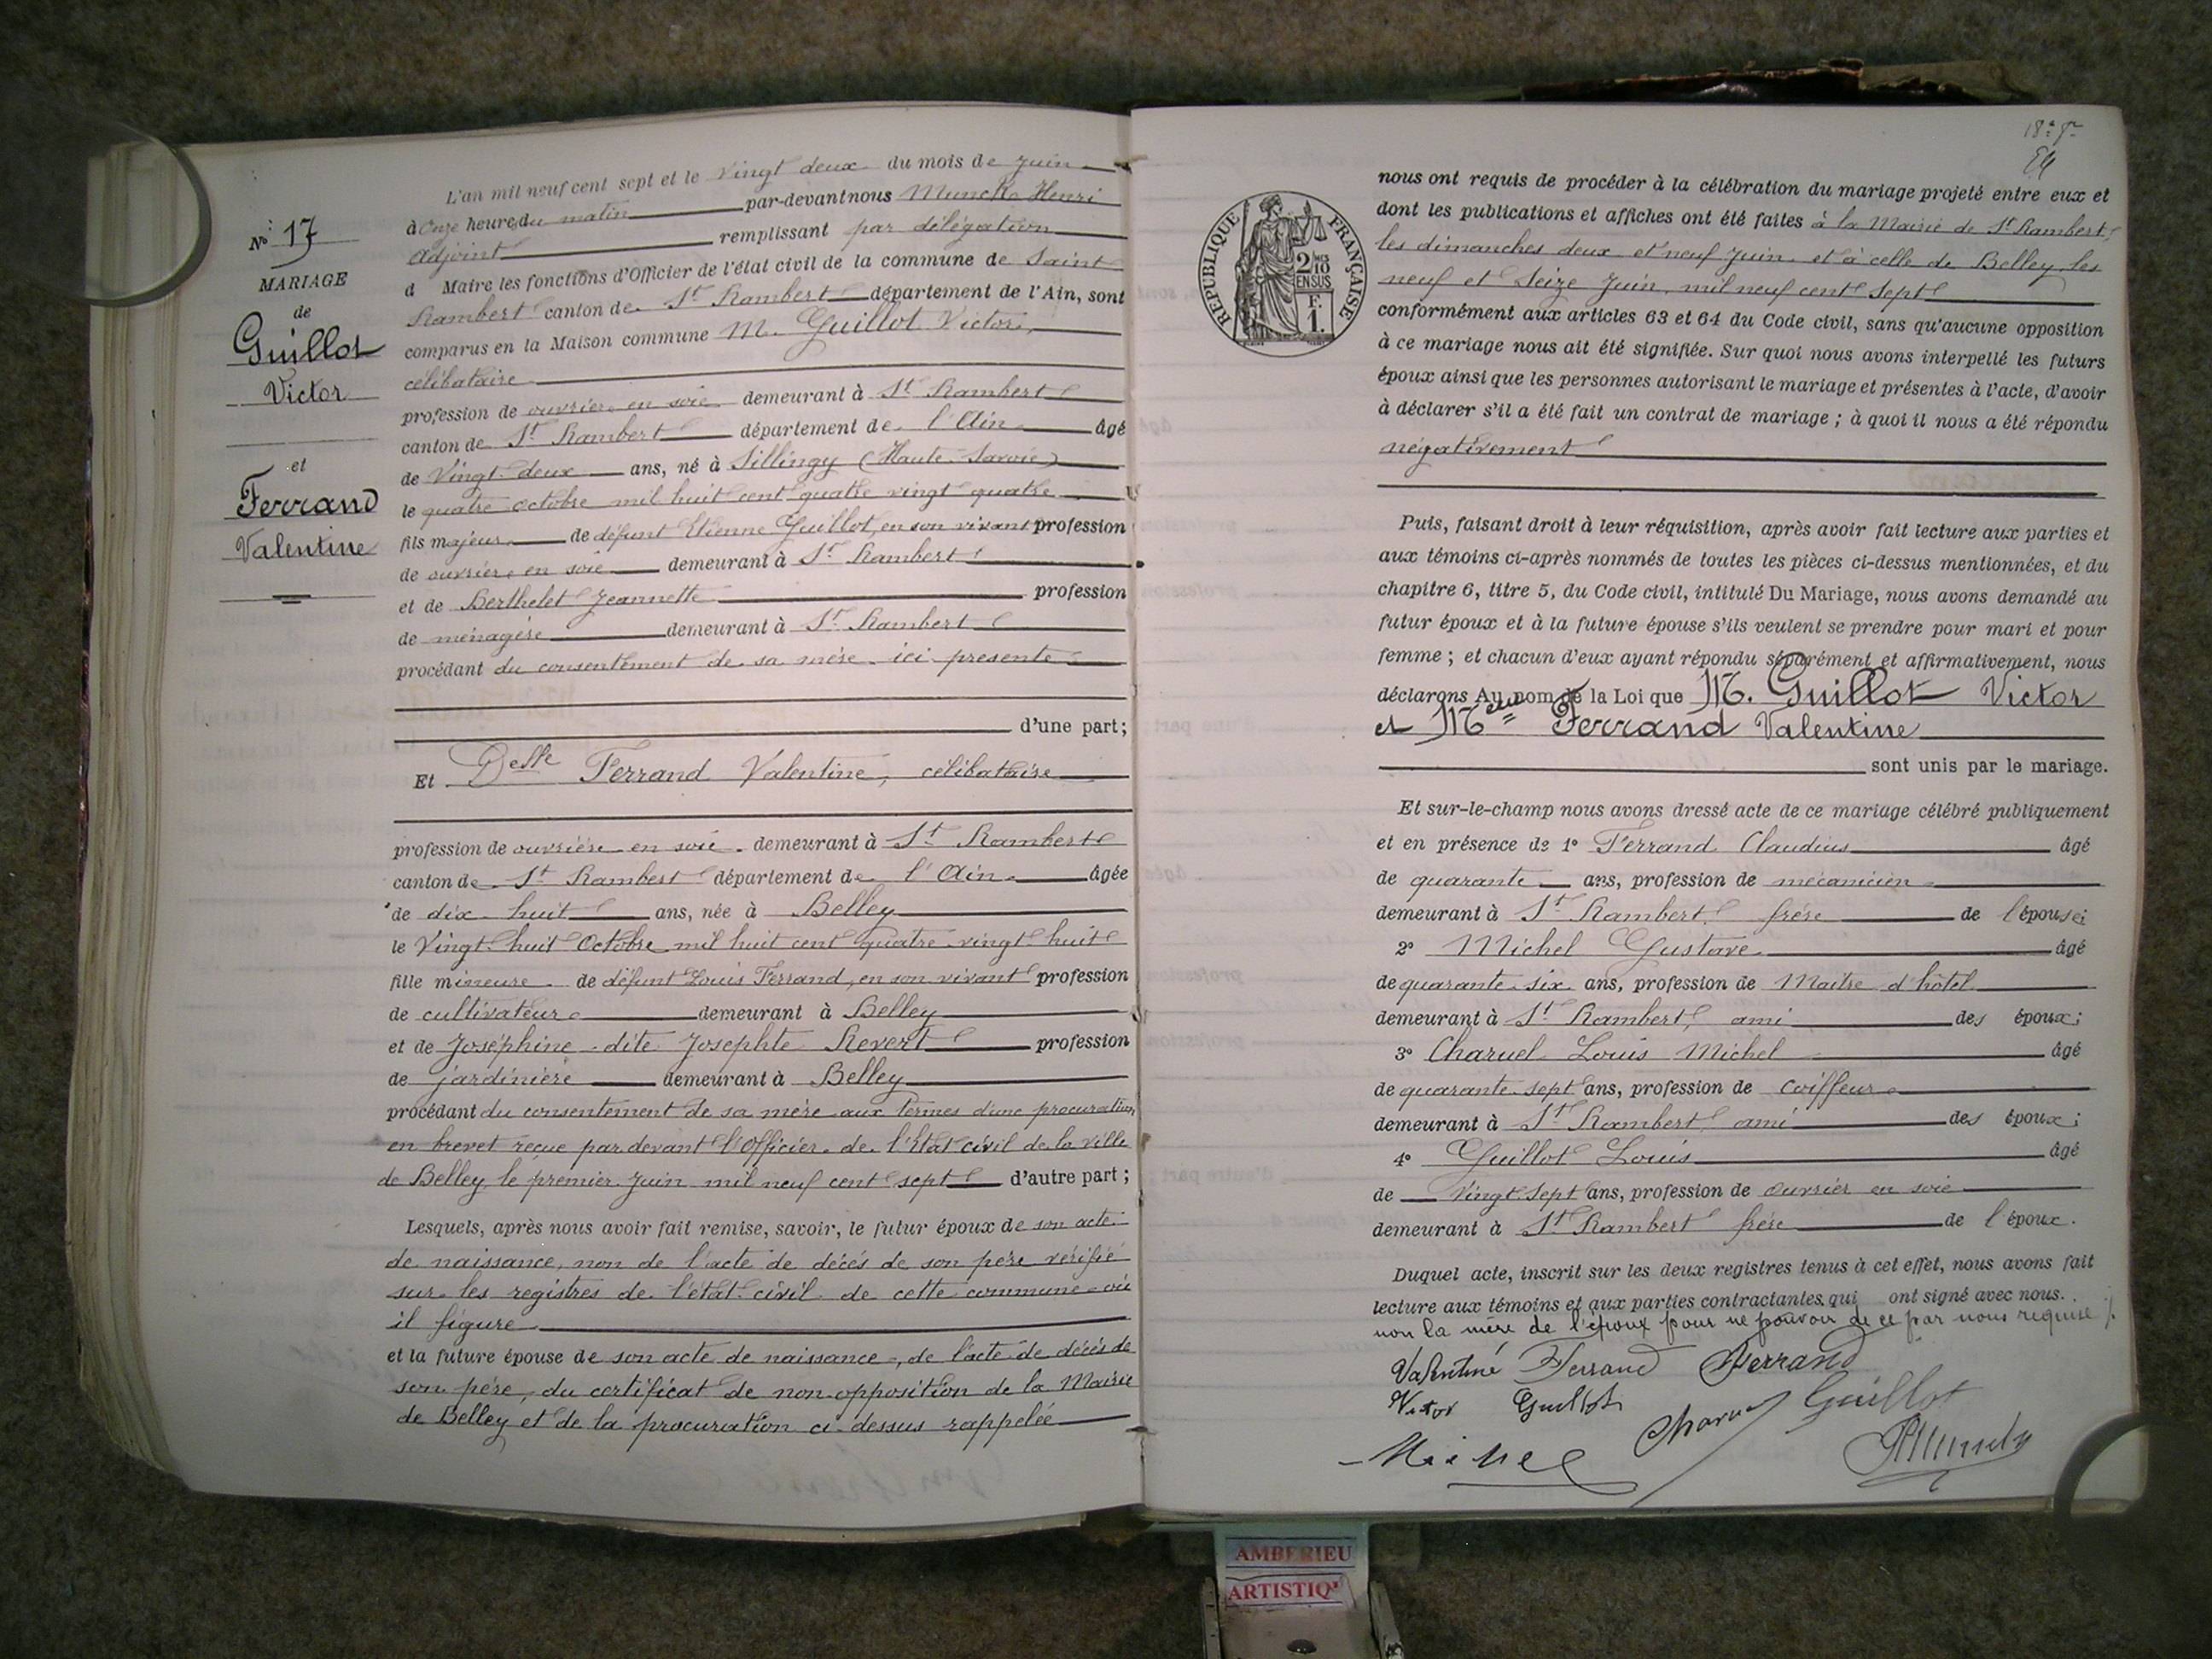 N° 17
MARIAGE
de
Guillot
Victor
et
Ferrand
Valentine
L'an mil neuf cent sept et le vingt deux du mois de Juin
à Onze heures du matin par-devant nous Munck Henri
adjoint remplissant par délégation
d Maire les fonctions d'Officier de l'état civil de la commune de Saint
Rambert canton de St Rambert département de l'Ain, sont
comparus en la Maison commune M. Guillot Victor,
célibataire
profession de ouvrier en soie demeurant à St Rambert
canton de St Rambert département de l'Ain âgé
de Vingt-deux ans, né à Sillingy (Haute-Savoie)
le quatre octobre mil huit cent quatre vingt quatre
fils majeur de défunt Etienne Guillot, en son vivant profession
de ouvrier en soie demeurant à St Rambert
et de Berthelet Jeannette profession
de ménagère demeurant à St Rambert
procédant du consentement de sa mère ici présente
d'une part;
Et Delle Ferrand Valentine, célibataire
profession de ouvrière en soie demeurant à St Rambert
canton de St Rambert département de l'Ain âgée
de dix-huit ans, née à Belley
le Vingt-huit Octobre mil huit cent quatre-vingt-huit
fille mineure de défunt Louis Ferrand, en son vivant profession
de cultivateur demeurant à Belley
et de Joséphine dite Josephte Revert profession
de jardinière demeurant à Belley
procédant du consentement de sa mère aux termes d'une procuration
en brevet reçue par devant l'Officier de l'Etat civil de la ville
de Belley le premier Juin mil neuf cent sept d'autre part;
Lesquels, après nous avoir fait remise, savoir, le futur époux de son acte
de naissance, non de l'acte de décès de son père vérifié
sur les registres de l'état-civil de cette commune où
il figure
et la future épouse de son acte de naissance, de l'acte de décès de
son père, du certificat de non-opposition de la Mairie
de Belley et de la procuration ci-dessus rappelée
REPUBLIQUE FRANÇAISE
2 MES 10 EN SUS
F. 1.
nous ont requis de procéder à la célébration du mariage projeté entre eux et
dont les publications et affiches ont été faites à la Mairie de St Rambert,
les dimanches deux et neuf Juin et à celle de Belley les
neuf et seize Juin, mil neuf cent sept
conformément aux articles 63 et 64 du Code civil, sans qu'aucune opposition
à ce mariage nous ait été signifiée. Sur quoi nous avons interpellé les futurs
époux ainsi que les personnes autorisant le mariage et présentes à l'acte, d'avoir
à déclarer s'il a été fait un contrat de mariage; à quoi il nous a été répondu
négativement
Puis, faisant droit à leur réquisition, après avoir fait lecture aux parties et
aux témoins ci-après nommés de toutes les pièces ci-dessus mentionnées, et du
chapitre 6, titre 5, du Code civil, intitulé Du Mariage, nous avons demandé au
futur époux et à la future épouse s'ils veulent se prendre pour mari et pour
femme; et chacun d'eux ayant répondu séparément et affirmativement, nous
déclarons Au nom de la Loi que M. Guillot Victor
et Melle Ferrand Valentine
sont unis par le mariage.
Et sur-le-champ nous avons dressé acte de ce mariage célébré publiquement
et en présence de 1° Ferrand Claudius âgé
de quarante ans, profession de mécanicien
demeurant à St Rambert, frère de l'épouse;
2° Michel Gustave âgé
de quarante-six ans, profession de Maître d'hôtel
demeurant à St Rambert, ami des époux;
3° Charuel Louis Michel âgé
de quarante-sept ans, profession de coiffeur
demeurant à St Rambert, ami des époux;
4° Guillot Louis âgé
de Vingt-sept ans, profession de ouvrier en soie
demeurant à St Rambert frère de l'époux.
Duquel acte, inscrit sur les deux registres tenus à cet effet, nous avons fait
lecture aux témoins et aux parties contractantes, qui ont signé avec nous.
non la mère de l'époux pour ne pouvoir de ce par nous requise
Valentine Ferrand Ferrand
Victor Guillot Charuel Guillot
Michel HMunck
AMBERIEU
ARTISTIQ'